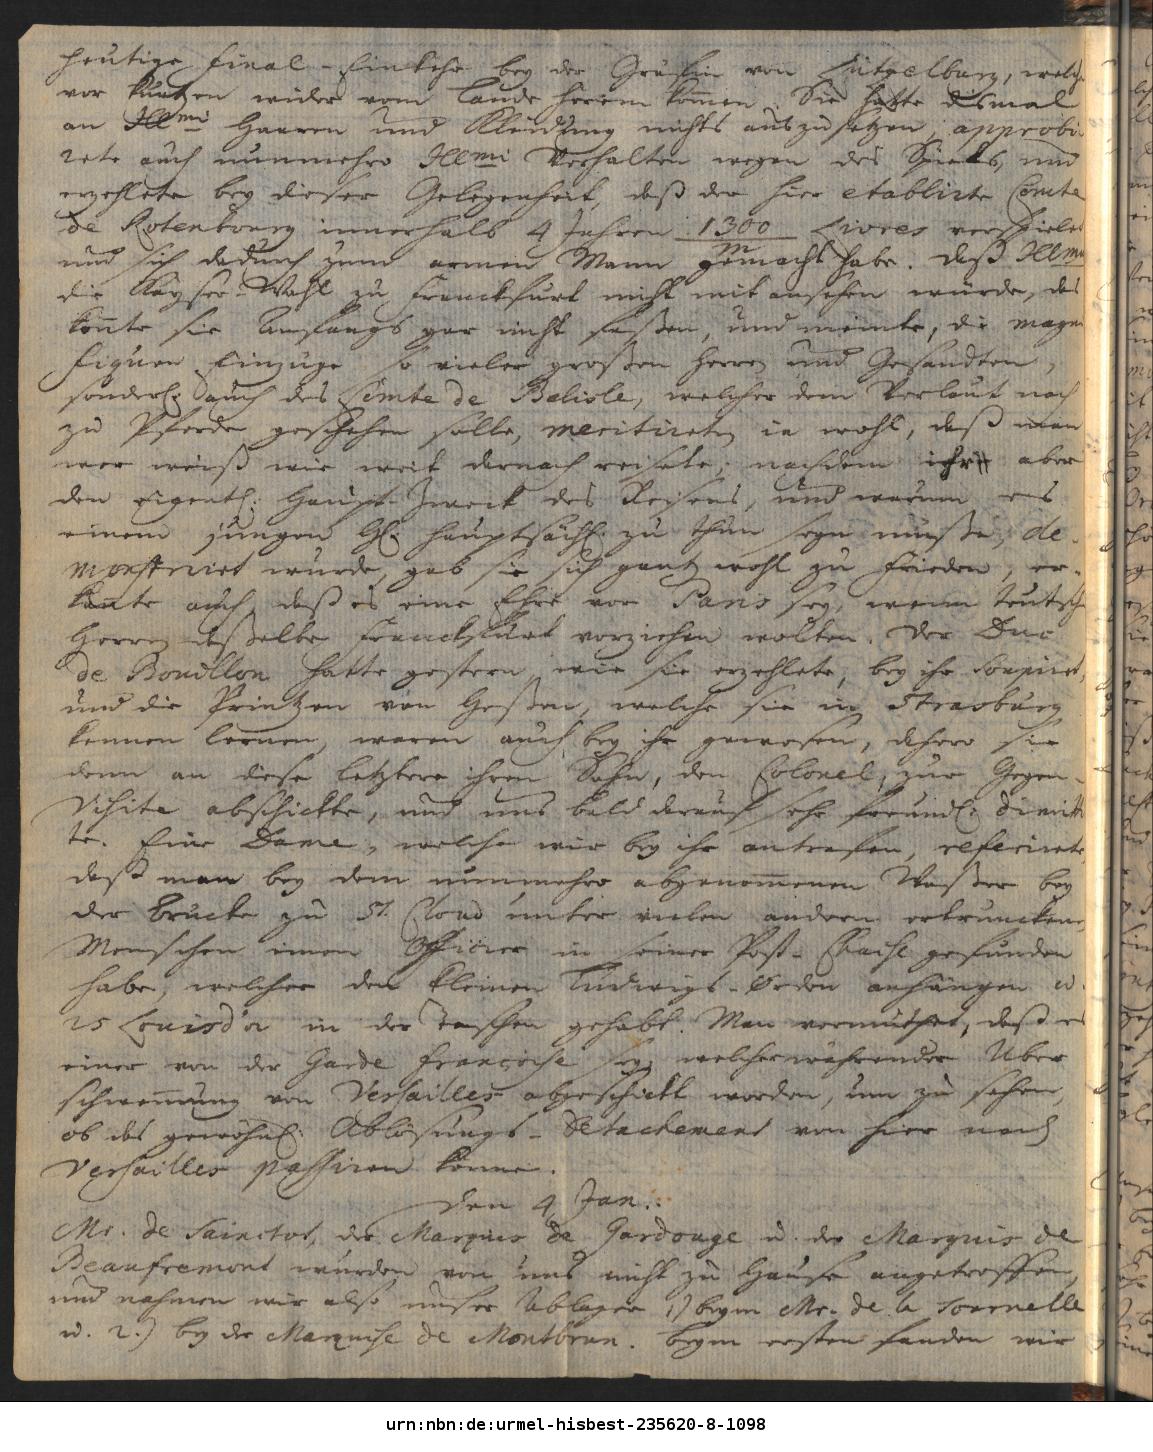 heutige Final-Einkehr bey der Gräfin von Lützelburg, welche
vor kurtzen wider vom Lande herein kom̄en. Sie hatte dismal
an Ill<sup>mi</sup> Haaren und Kleidung nichts auszusetzen, approbi-
rete auch nunmehro Ill<sup>mi</sup> Verhalten wegen des Spiels, und
erzehlete bey dieser Gelegenheit, daß der hier etablirte Comte
de Rotenbourg innerhalb 4 Jahren 1300 m Livres verspielet
und sich dadurch zum armen Mann gemacht habe. Daß Ill<sup>mus</sup>
die Kayser-Wahl zu Franckfurt nicht mit ansehen würde, das
konte sie Anfangs gar nicht faßen, und meinte, die magni-
fiquen Einzüge so vieler großen Herren und Gesandten,
sonderl. auch des Comte de Belisle, welcher dem Verlaut nach
zu Pferde geschehen solle, meritireten ia wohl, daß man
wer weiß wie weit darnach reisete; nachdem ihr aber
den eigentl. Haupt-Zweck des Reisens, und warum es
einem jungen H. hauptsächl. zu thun seyn müße, de-
monstriret wurde, gab sie sich gantz wohl zu Frieden, er-
kante auch, daß es eine Ehre vor Paris sey, wenn teutsche
Herren daßelbe Franckfurt vorziehen wolten. Der Duc
de Bouillon hatte gestern, wie sie erzehlete, bey ihr soupiret,
und die Printzen von Heßen, welche sie in Strasburg
kennen lernen, waren auch bey ihr gewesen, dahero sie
denn an diese letztere ihren Sohn, den Colonel, zur Gegen-
Visite abschickte, und uns bald darauf sehr freundl. dimitti-
te. Eine Dame, welche wir bey ihr antrafen, referirete,
daß man bey dem nunmehro abgenom̄enen Waßer bey
der Brücke zu St. Cloud unter vielen andern ertrunckenen
Menschen einen Officier in seiner Post-Chaise gefunden
habe, welcher den kleinen Ludwigs-Orden anhängen u.
25 Louisd'or in der Taschen gehabt. Man vermuthet, daß es
einer von der Garde Françoise sey, welcher währender Uber
schwem̄ung von Versailles abgeschickt worden, um zu sehen,
ob das gewöhnl. Ablösungs-Detachement von hier nach
Versailles passiren könne.
Den 4 Jan.
Mr. de Sainctot, der Marquis de Gardouge u. der Marquis de
Beaufremont wurden von uns nicht zu Hause angetroffen,
und nahmen wir also unser Ablager 1) beym Mr. de la Tournelle
u. 2.) bey der Marquise de Montbrun. Beym ersten fanden wir
urn:nbn:de:urmel-hisbest-235620-8-1098